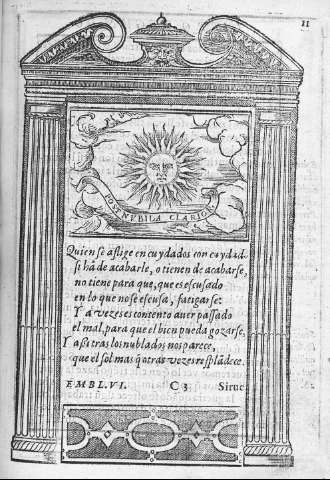 11
POST NVBILA CLARIOR
Quien se aflige en cuydados con cuydad.
si hâ de acabarle, o tienen de acabarse,
no tiene para que, que es escusado
en lo que no se escusa, fatigarse:
Y a vezes es contento auer passado
el mal, para que el bien pueda gozarse.
Y assi tras los nublados nos parece,
que el sol mas q̃ otras vezes resplãdece.
EMBL. VI. C 3 Sirue